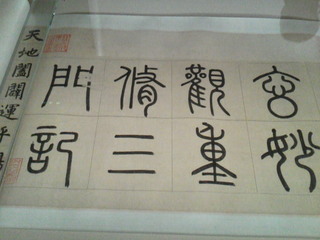 玄妙
觀重
脩三
門記
天地闔闢運乎